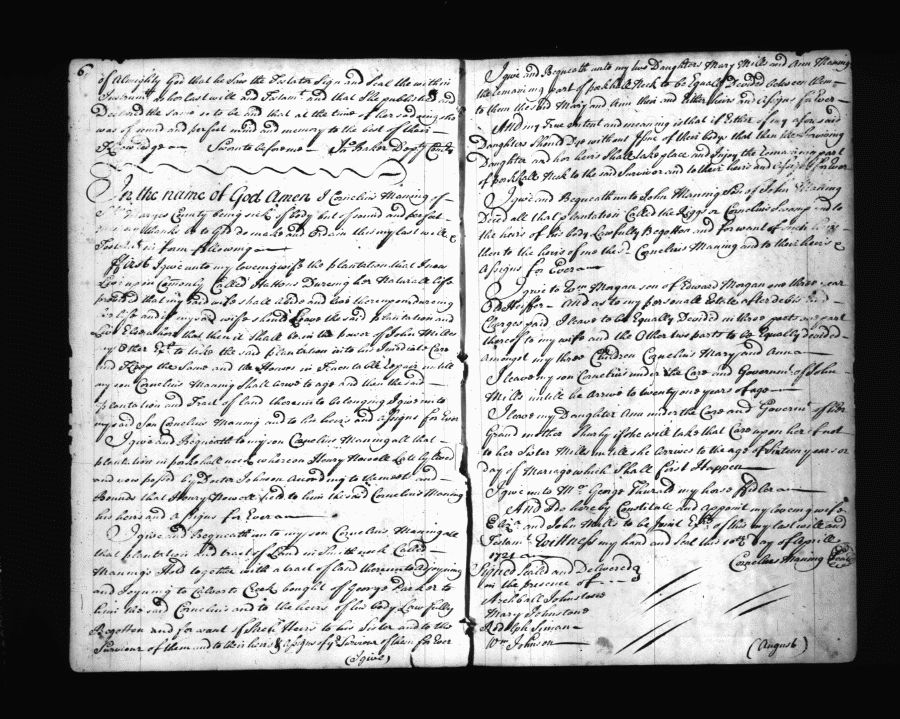 6
of Almighty God that he Saw the Testator Sign and Seal the within
Instrumt as her last will and Testamt and that She published and
Declared the same so to be and that at the time of her so doing she
was of sound and perfect mind and memory to the best of their
Knowledge Sworn to before me Jn Baker Depty Com
In the name of God Amen I Cornelius Maning of
St Maryes County being sick of body but of sound and perfect
thanks be to God do make and ordain this my last will &
Testament in form following
First I give unto my loveing wife the plantation that I now
Live upon Comonly Called Hattons Dureing her Naturall life
provided that my said wife shall abide and live thereupon dureing
her life and if my said wife should Leave the said plantation and
Live Elsewhere that then it Shall be in the power of John Mills
my other Exr to take the said plantation into his Imediate Care
and Keep the Same and the Houses in Tenentable Repair untill
my son Cornelius Maning Shall arive to age and then the said
plantation and Tract of land thereunto belonging I give unto
my said Son Cornelius Maning and to his heirs and assigns for Ever
I give and Bequeath to my son Cornelius Maning all that
plantation in porkhall neck whereon Henry Howell Lately lived
and now posesd by Doctor Johnson According to the meets and
Bounds that Henry Howell held to him the said Cornelius Maning
his heirs and assigns for Ever
I give and Bequeath unto my son Cornelius Maning all
that plantation and tract of Land in Smith neck Called
Manings Hold together with a tract of land thereunto adjoyning
and Joyning to Calverts Creek bought of George Parker to
him the said Cornelius and to the heirs of his body Lawfully
Begotten and for want of Such Heirs to his Sister and to the
Surviour of them and to their heirs & assigns of ye Surviour of them for Ever
(I give)
I give and Bequeath unto my two Daughters Mary Mills and Ann Maning
the remaining part of porkhall Neck to be Equally Devided between them
to them the said Mary and Ann their and Either heirs and assigns for Ever
And my True intent and meaning is that if Either of my aforesaid
Daughters Should Dye without Issue of their body that then the Surviving
Daughter and her heirs Shall take place and Injoy the remaining part
of porkhall Neck to the said Survivor and to their heirs and assigns for Ever
I give and Bequeath unto John Maning Son of John Maning
Decd all that plantation Called the Riggs or Cornelius Swamp and to
the heirs of his body Lawfully Begotten and for want of such
then to the heirs of me the sd Cornelius Maning and to their heirs &
Assigns for Ever
I give to Wm Morgan son of Edward Morgan one three year
old Heiffer And as to my personall Estate after debts and
Charges paid I leave to be Equally Devided in three parts one part
thereof to my wife and the Other two parts to be Equally devided
amongst my three Children Cornelius Mary and Anna
I leave my son Cornelius under the Care and Governmt of John
Mills untill he arive to twenty one years of age
I leave my Daughter Ann under the Care and Governmt of her
Grand mother if she will take that Care upon her if not
to her Sister Mills untill she arrives to the age of Sixteen years or
day of Mariage which Shall first Happen
I give unto Mr George Thorrald my horse
And I do hereby Constitute and appoint my loveing wife
Eliza and John Mills to be joint Exrs of this my last will and
Testamt Wittness my hand and Seal this 10th Day of Aprill
1721
Cornelius Maning Seale
Signed Sealed and Delivered
in the presence of
Archball Johnstone
Mary Johnstone
Rodolph
Wm Johnson
(August)